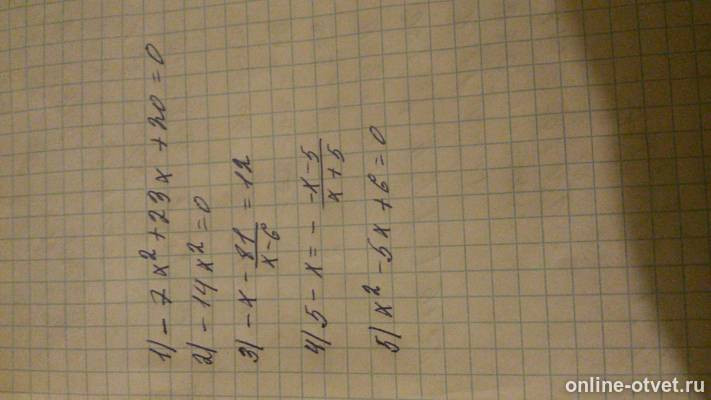 1) -7x²+23x+20=0
2) -14x²=0
3) -x - 81/(x-6) = 12
4) 5-x = - (-x-5)/(x+5)
5) x²-5x+6=0
online-otvet.ru